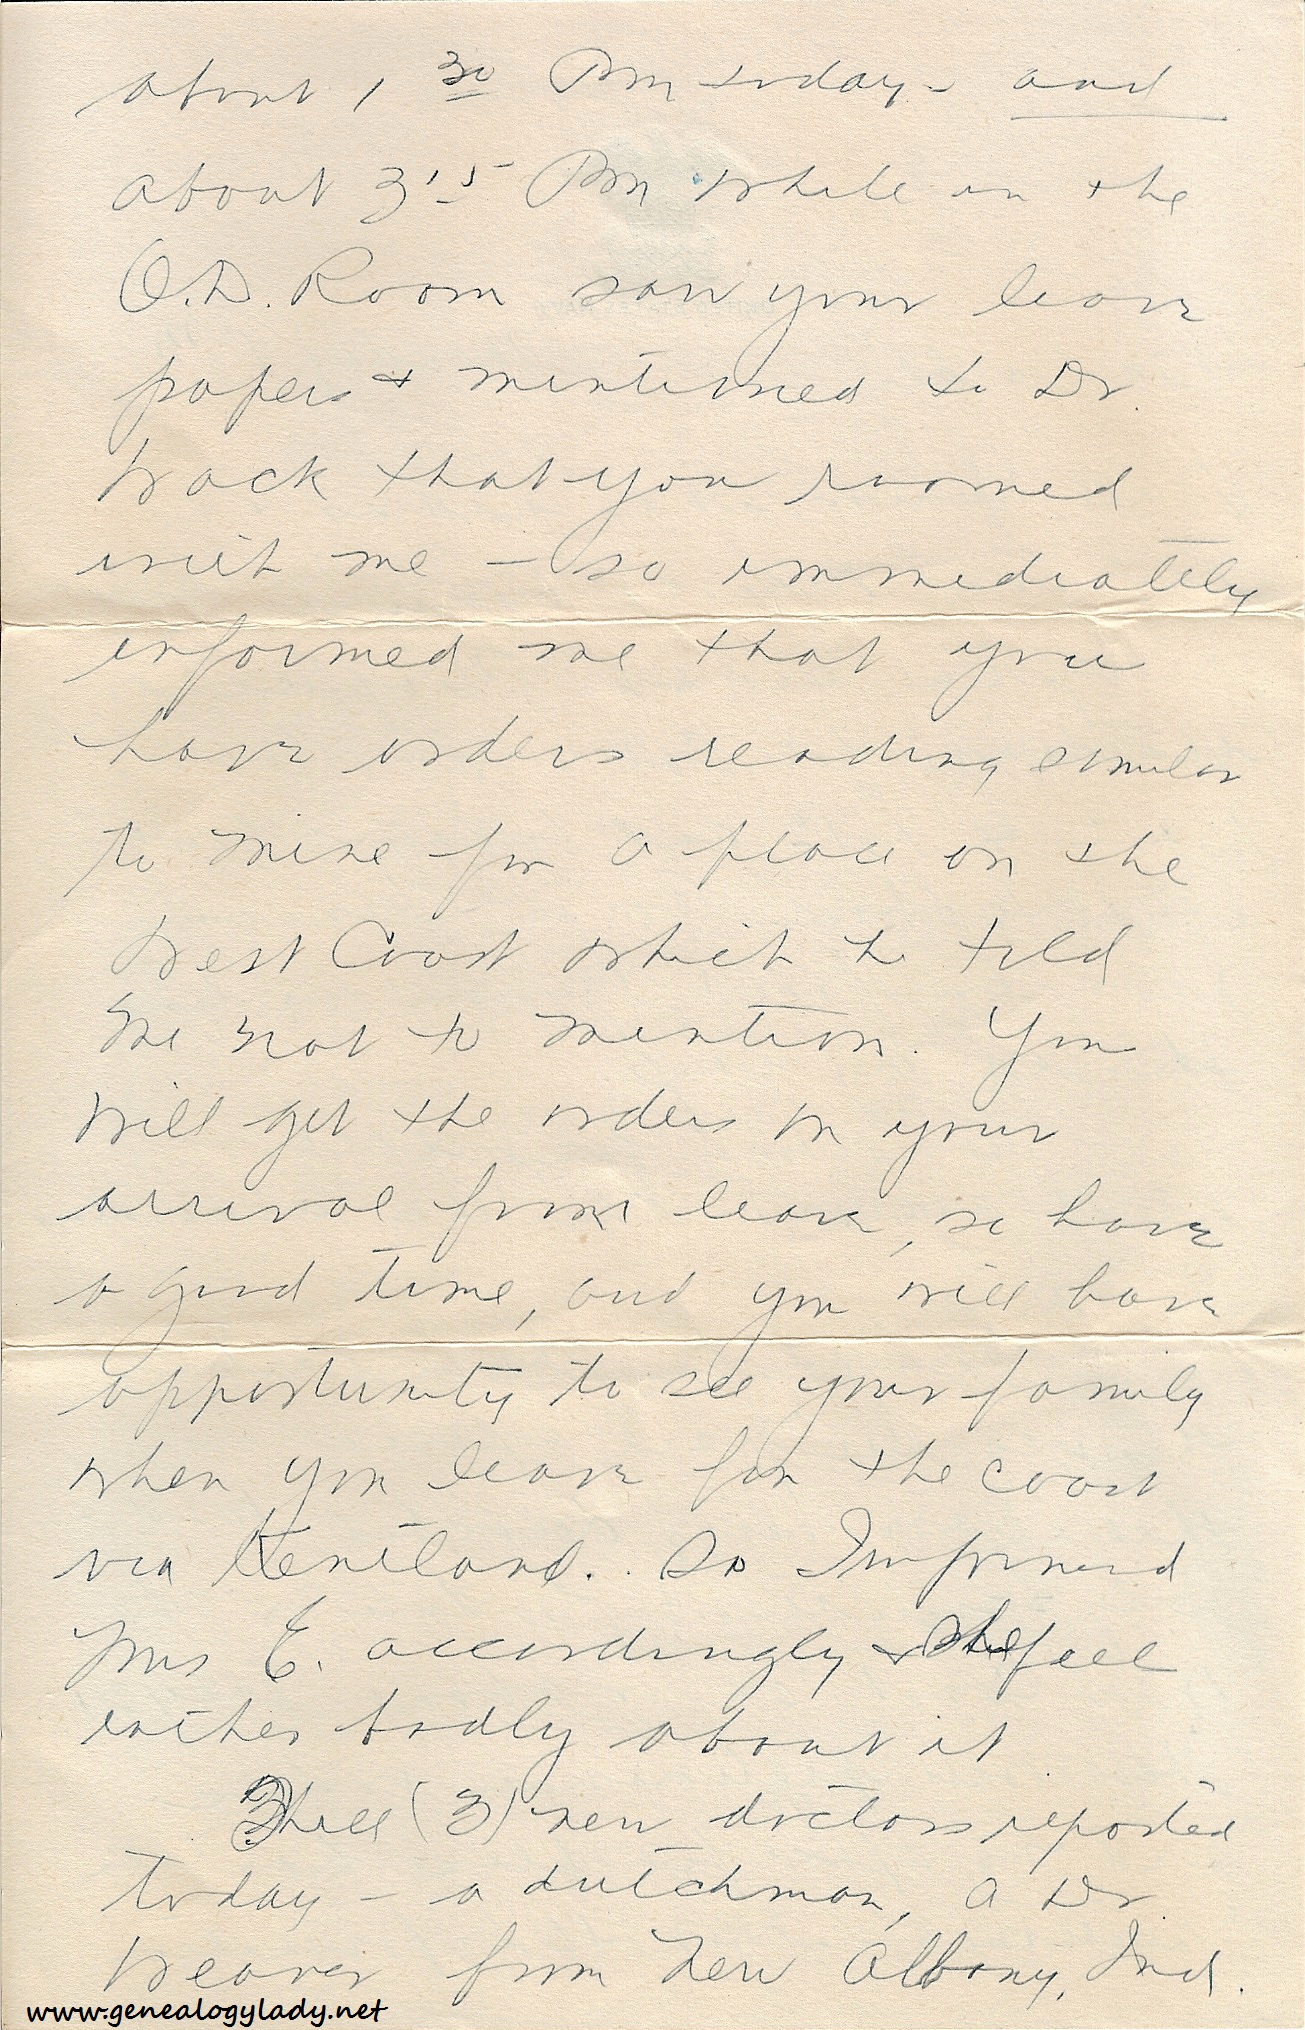 about 1 30 PM today - and
about 3 15 PM while in the
O.D. Room saw your leave
papers & mentioned to Dr.
Wack that you roomed
with me - so immediately
informed me that you
have orders reading similar
to mine for a place on the
West Coast which he told
me not to mention. You
will get the orders on your
arrival from leave, so have
a good time, and you will have
opportunity to see your family
when you leave for the coast
via Kentland. So I informed
Mrs E. accordingly & she feel
rather badly about it
Three (3) new doctors reported
today - a dutchman, a Dr.
Weaver from New Albany, Ind.
www.genealogylady.net